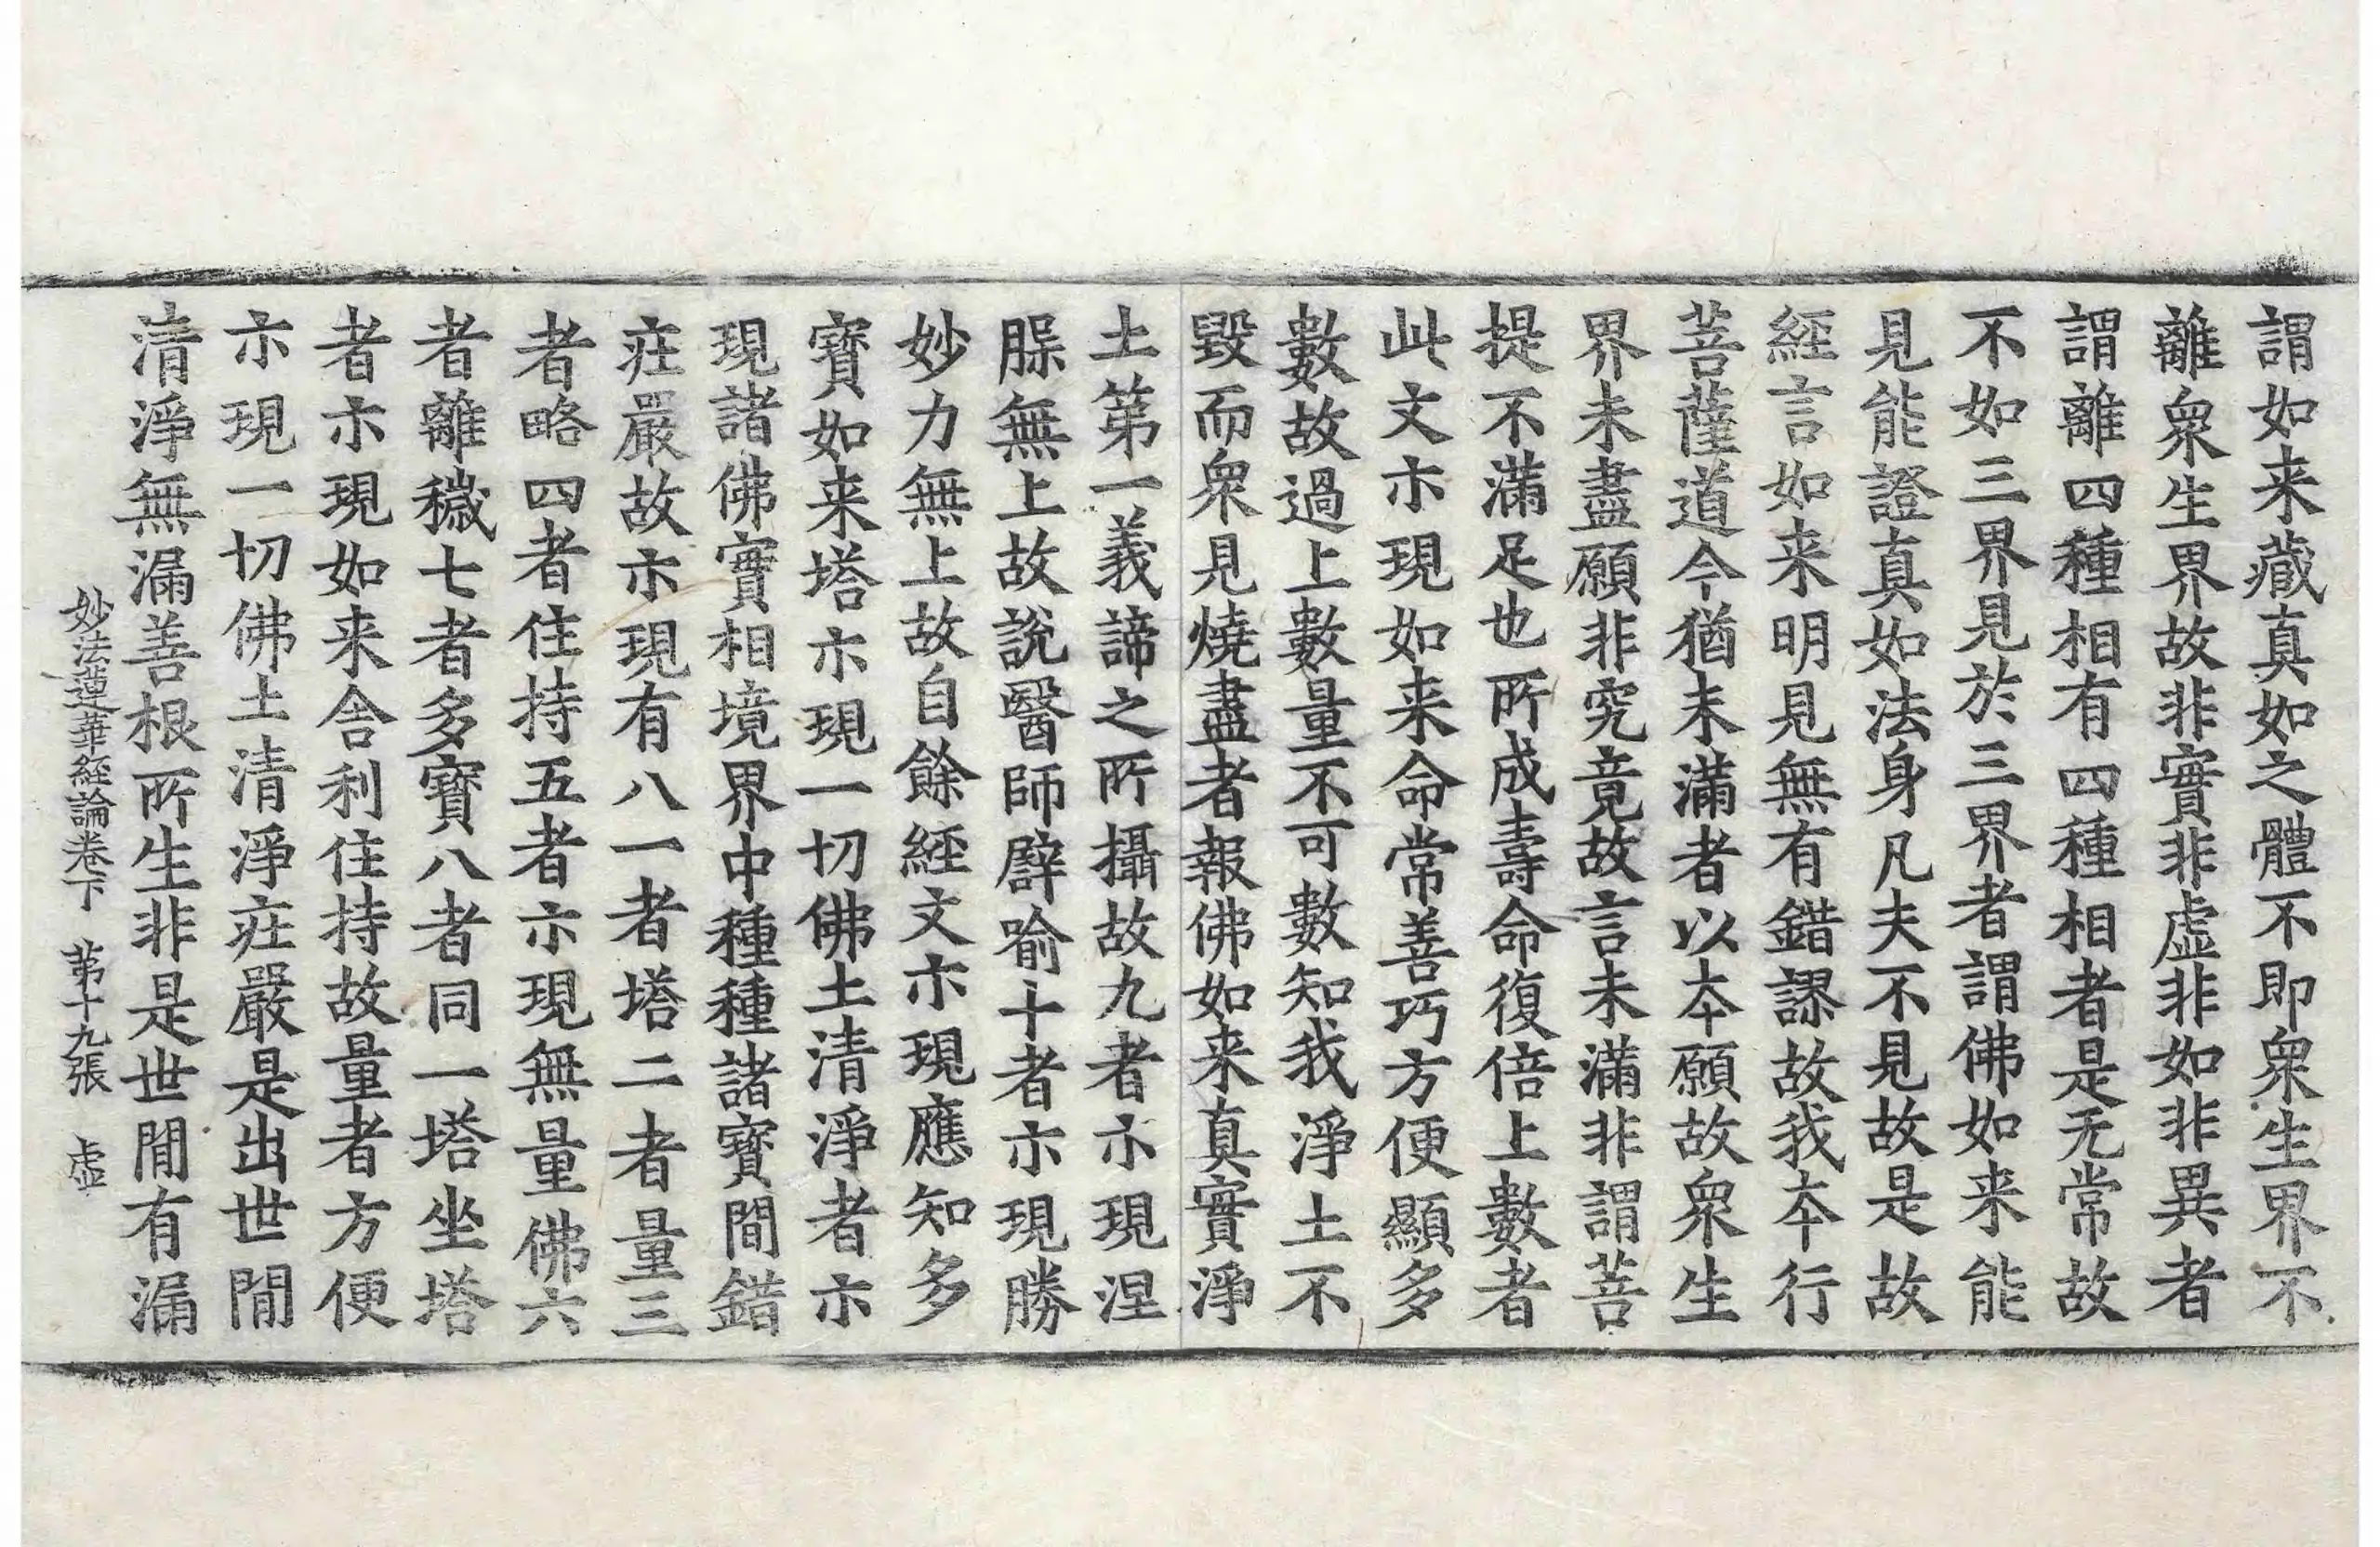 謂如来藏真如之體不即衆生界不
離衆生界故非實非虛非如非異者
謂離四種相有四種相者是无常故
不如三界見於三界者謂佛如来能
見能證真如法身凡夫不見故是故
經言如来明見無有錯謬故我夲行
菩薩道今猶未滿者以夲願故衆生
界未盡願非究竟故言未滿非謂菩
提不滿足也所成壽命復倍上數者
此文示現如来命常善巧方便顯多
數故過上數量不可數知我淨土不
毀而衆見燒盡者報佛如来真實淨
土第一義諦之所攝故九者示現涅
𣎴無上故說醫師譬喻十者示現勝
妙力無上故自餘経文示現應知多
寶如来塔示現一切佛土清淨者示
現諸佛實相境界中種種諸寶間錯
莊嚴故示現有八一者塔二者量三
者略四者住持五者示現無量佛六
者離穢七者多寶八者同一塔坐塔
者示現如来舎利住持故量者方便
示現一切佛土清淨莊嚴是出世間
清淨無漏善根所生非是世間有漏
妙法蓮華経論卷下 第十九張 虛